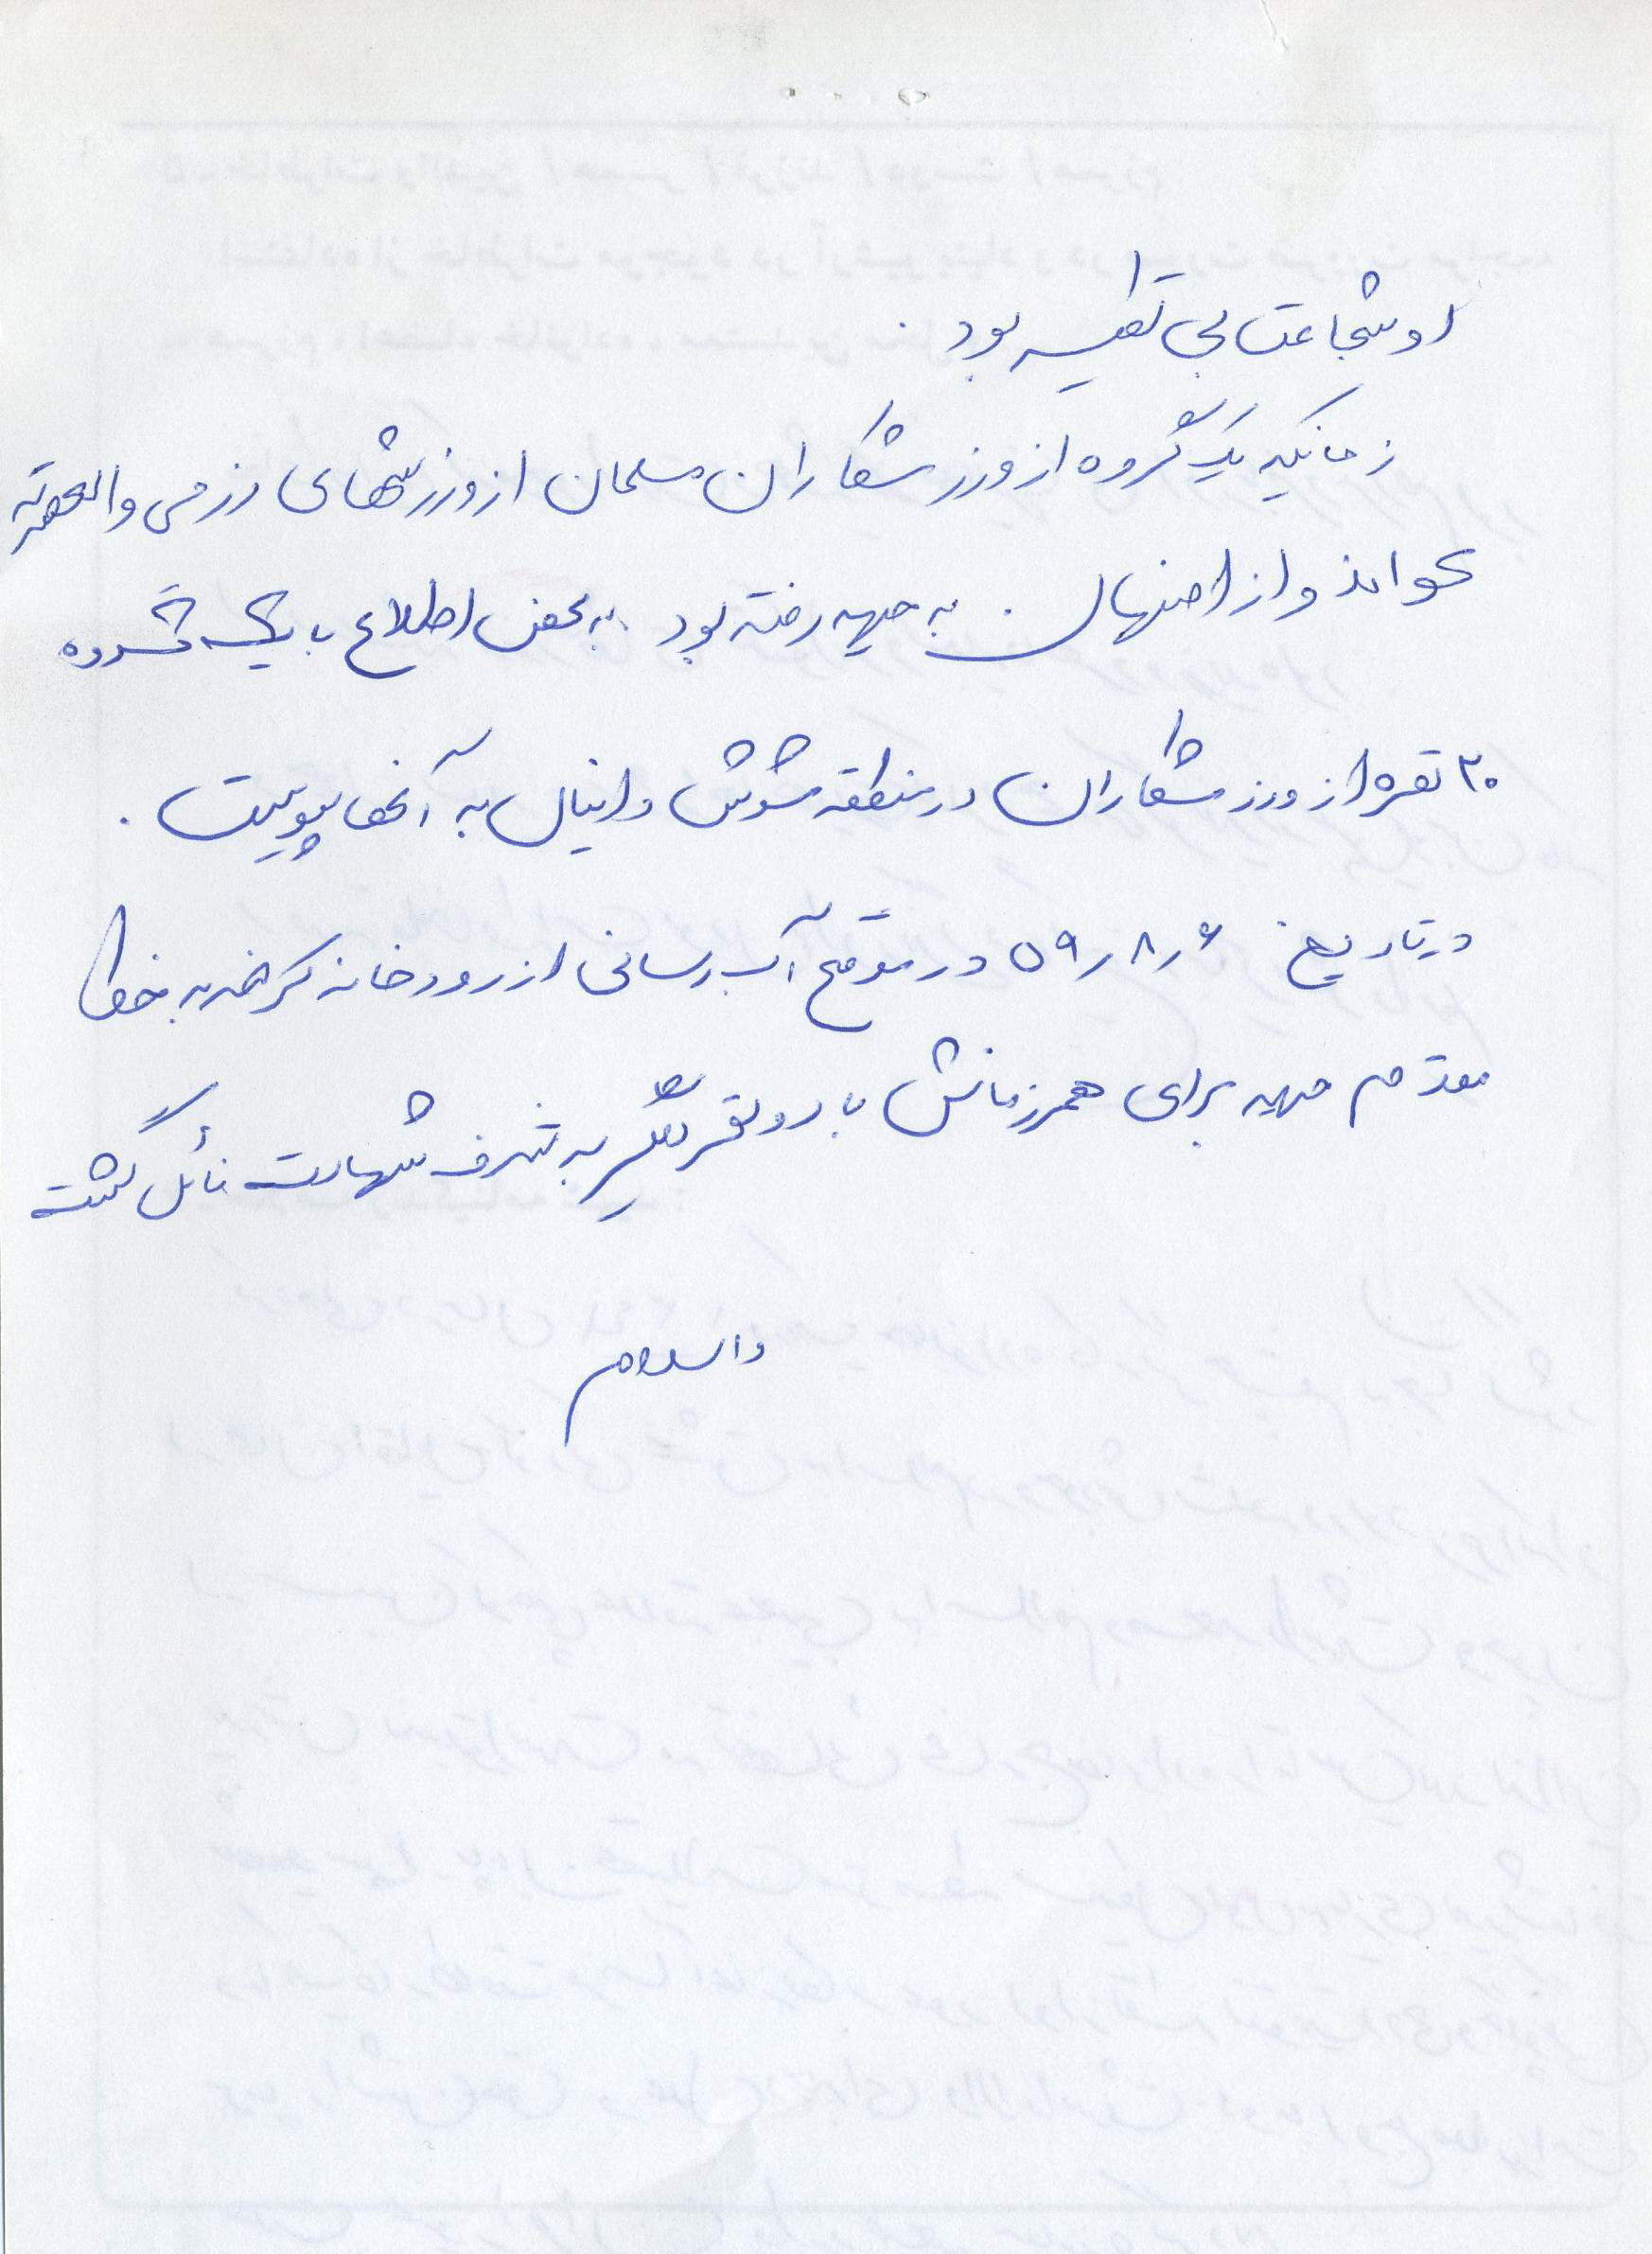 او شجاعت بی نظیر بود .
زمانیکه یک گروه از ورزشکاران مسلمان از ورزشهای رزمی
و از اصفهان به جبهه رفته بود به محض اطلاع با یک گروه
۳۰ نفره از ورزشکاران در منطقه شوش دانیال به آنها پیوست .
در تاریخ ۵۹٫۸٫۶ در موقع آب رسانی از رودخانه کرخه به خط
مقدم جبهه برای همرزمانش با دو نفر دیگر به شرف شهادت نائل گشت
والسلام